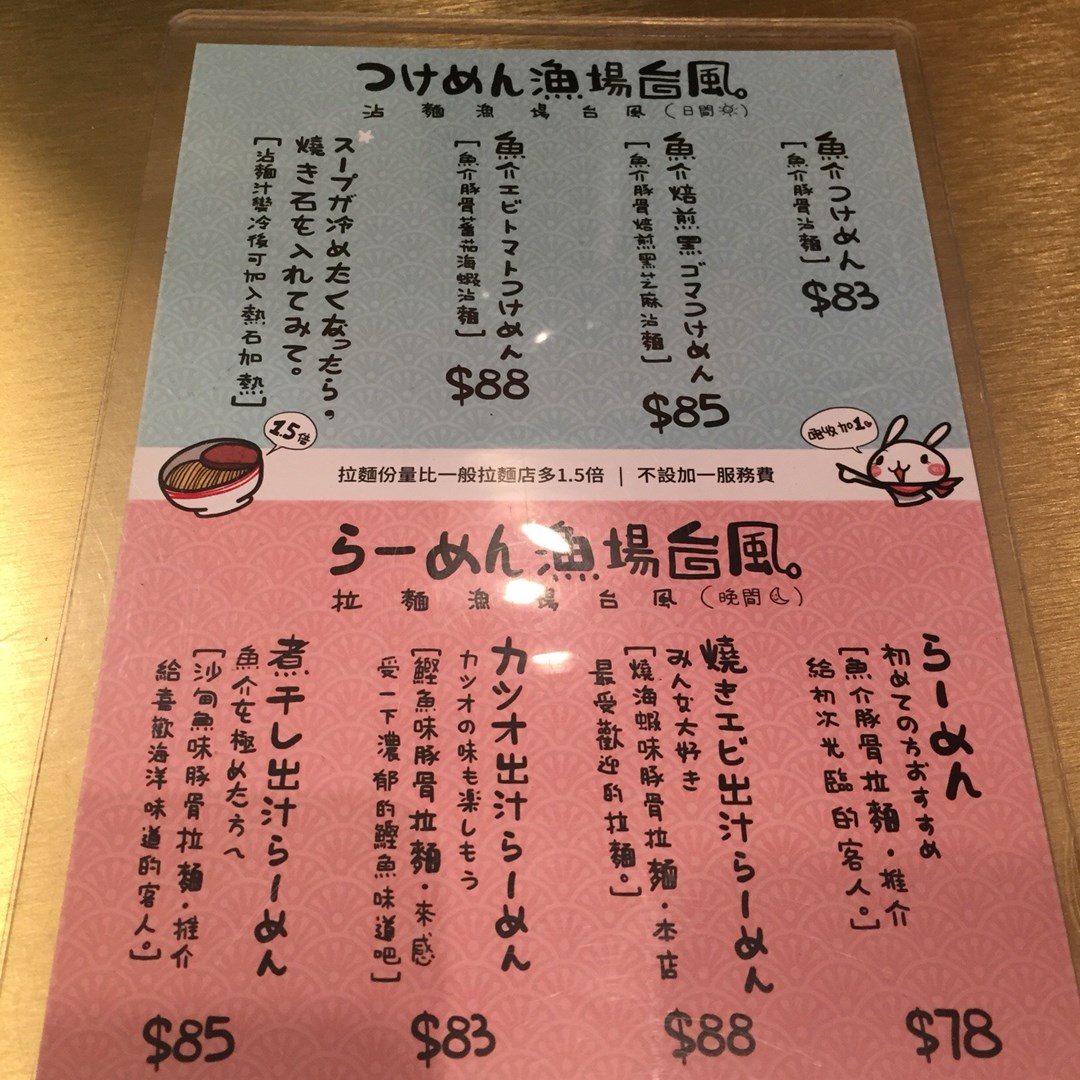 つけめん漁場台風。
沾麵漁場台風(日間)
魚介つけめん
[魚介豚骨沾麵]
$83
魚介焙煎黒ゴマつけめん
[魚介豚骨焙煎黑芝麻沾麵]
$85
魚介エビトマトつけめん
[魚介豚骨蕃茄海蝦沾麵]
$88
スープが冷めたくなったら,
焼き石を入れてみて。
[沾麵汁變冷後可加入熱石加熱]
1.5倍
唔收加1
拉麵份量比一般拉麵店多1.5倍 | 不設加一服務費
らーめん漁場台風。
拉麵漁場台風(晚間)
らーめん
初めての方おすすめ
[魚介豚骨拉麵・推介
給初次光臨的客人。]
$78
焼きエビ出汁らーめん
みんな大好き
[燒海蝦味豚骨拉麵・本店
最受歡迎的拉麵。]
$88
カツオ出汁らーめん
カツオの味も楽しもう
[鰹魚味豚骨拉麵・來感
受一下濃郁的鰹魚味道吧]
$83
煮干し出汁らーめん
魚介を極めた方へ
[沙甸魚味豚骨拉麵・推介
給喜歡海洋味道的客人。]
$85